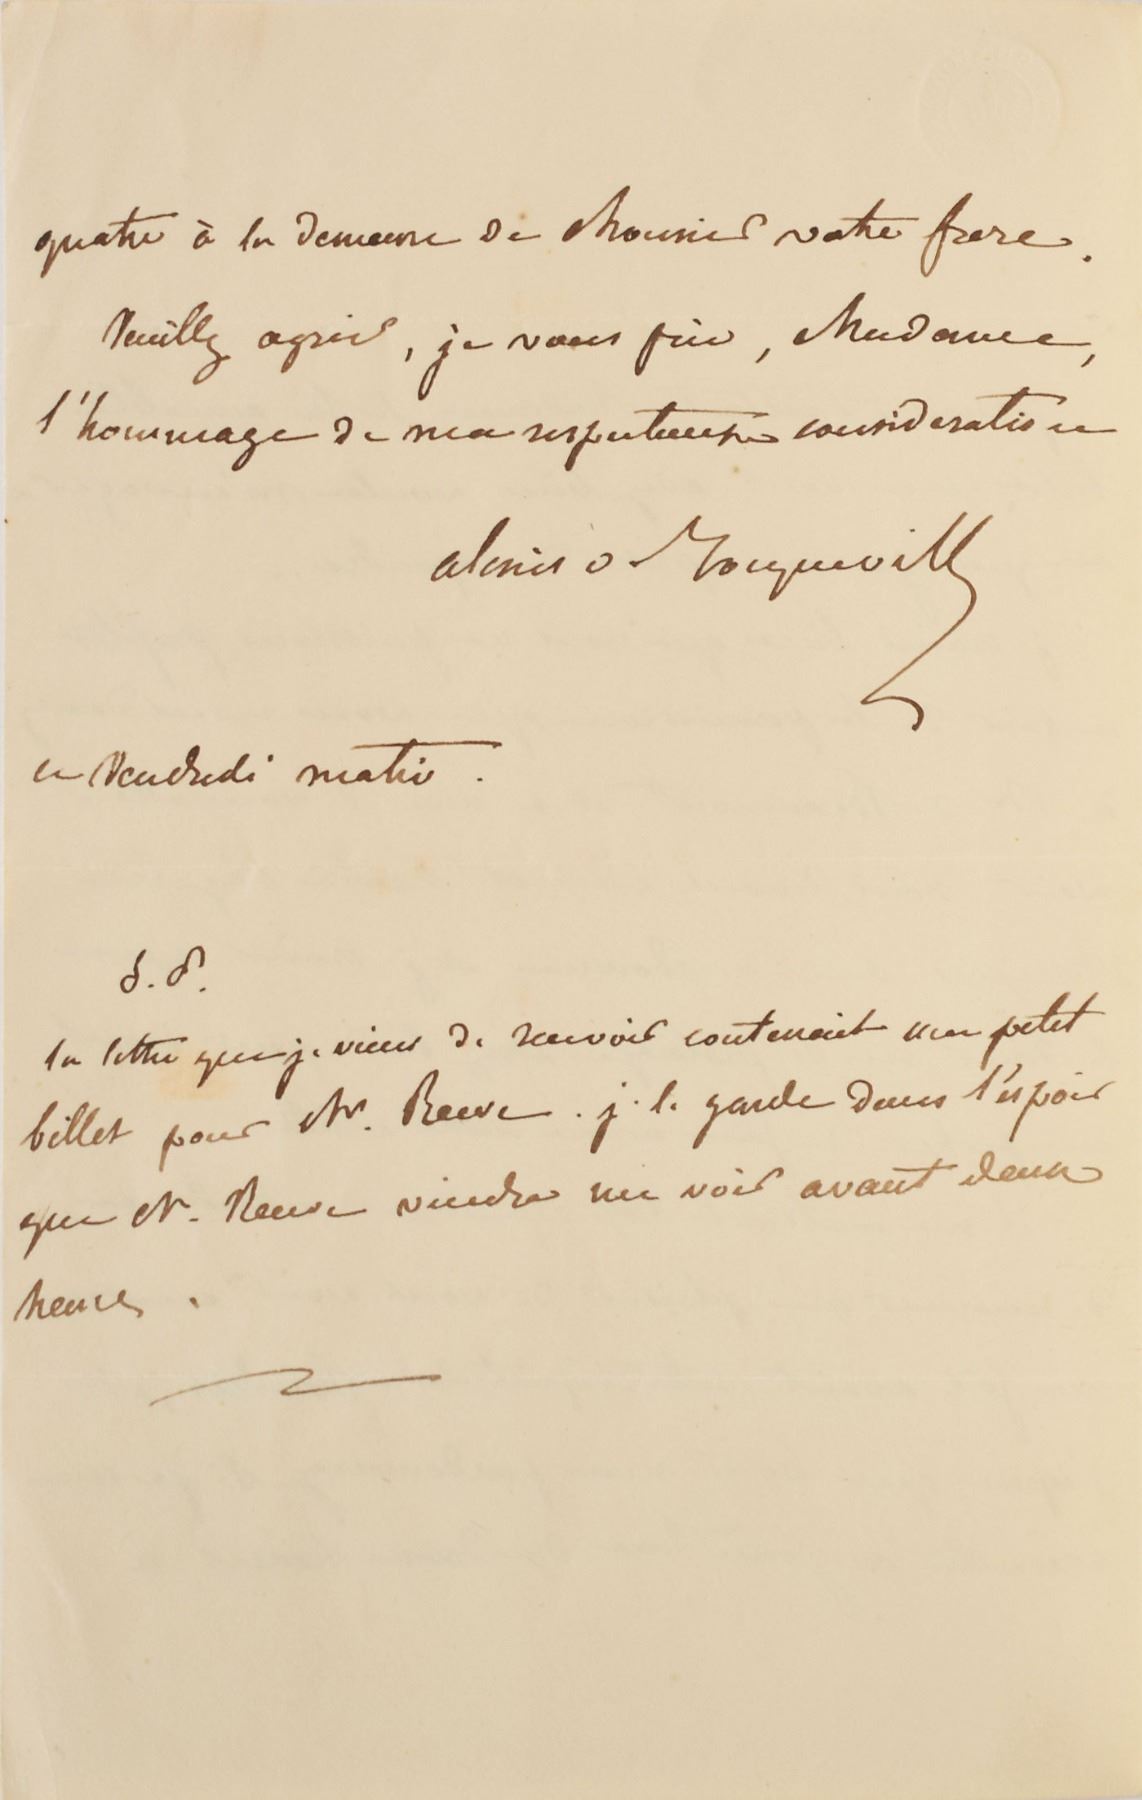 quatre à la demeure de Monsieur votre frere.
Veuillez agréer, je vous prie, Madame,
l'hommage de ma respectueuse consideration
alexis de Tocqueville
ce Vendredi matin.
S. P.
la lettre que je viens de recevoir contenait un petit
billet pour Mr. Reeve. je le garde dans l'espoir
que Mr. Reeve viendra me voir avant deux
heures.